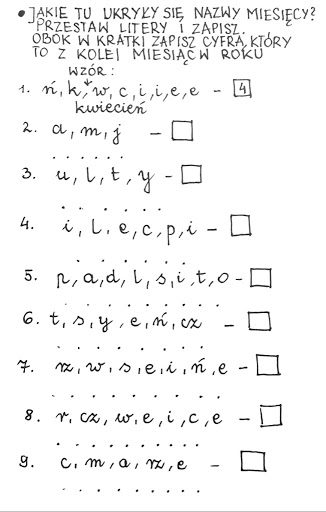 • JAKIE TU UKRYŁY SIĘ NAZWY MIESIĘCY?
PRZESTAW LITERY I ZAPISZ.
OBOK W KRATKI ZAPISZ CYFRĄ, KTÓRY
TO Z KOLEI MIESIĄC W ROKU
WZÓR:
1. ń, k, w, c, i, i, e, e - 4
kwiecień
2. a, m, j -
3. u, l, t, y -
4. i, l, e, c, p, i -
5. p, a, d, l, s, i, t, o -
6. t, s, y, e, ń, cz -
7. rz, w, s, e, i, ń, e -
8. r, cz, w, e, i, c, e -
9. c, m, a, rz, e -